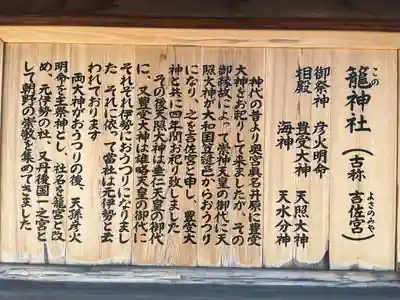 この
籠神社(古称 吉佐宮)
よさのみや
御祭神 彦火明命
相殿 豊受大神 天照大神
海神 天水分神
神代の昔より奥宮眞名井原に豊受
大神をお祀りして来ましたが、その
御縁故によって崇神天皇の御代に天
照大神が大和国笠縫邑からおうつり
になり、之を吉佐宮と申し、豊受大
神と共に四年間お祀り致しました
その後天照大神は垂仁天皇の御代
に、又豊受大神は雄略天皇の御代に
それぞれ伊勢におうつりになりまし
た。それに依って當社は元伊勢と云
われております
両大神がおうつりの後、天孫彦火
明命を主祭神とし、社名を籠宮と改
め、元伊勢の社、又丹後国一之宮と
して朝野の崇敬を集めてきました